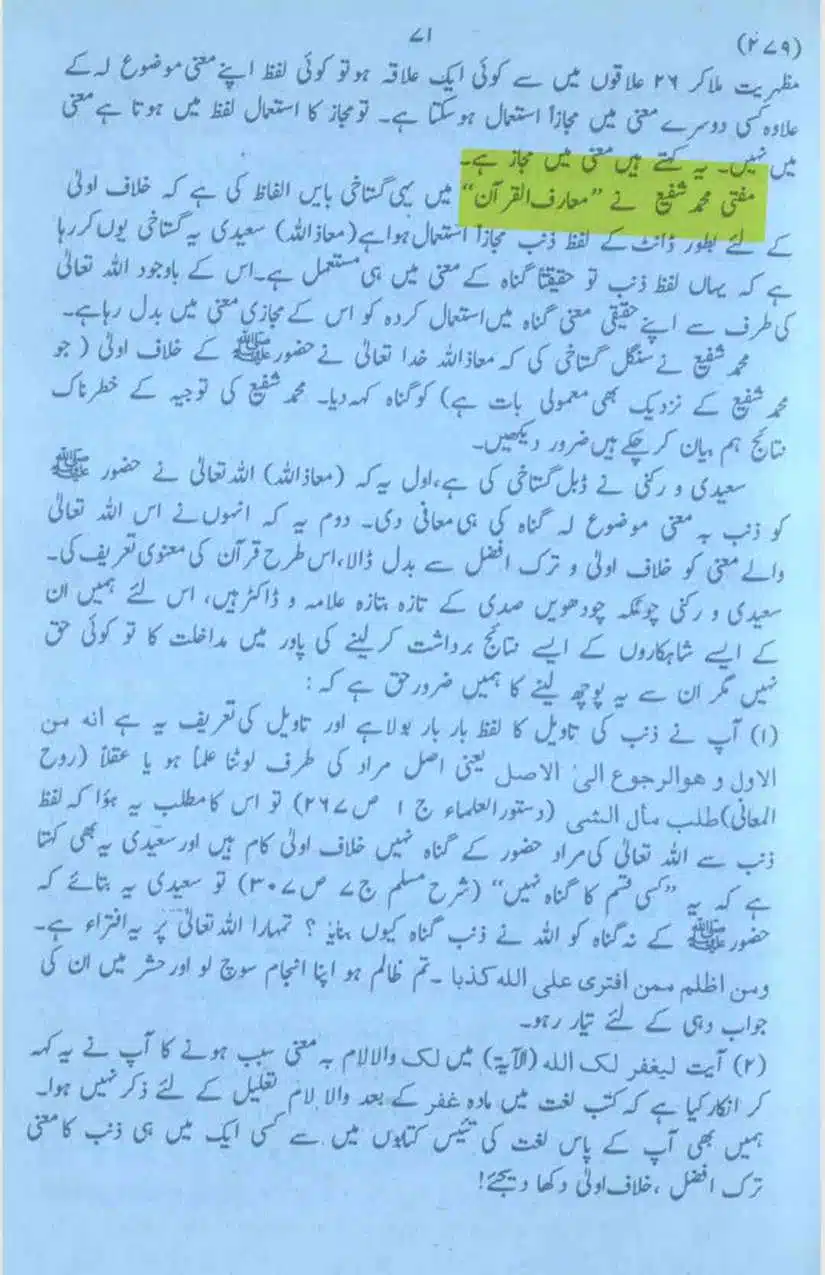 (۲۷۹)
۷۱
مظہریت ملاکر ۲۶ علاقوں میں سے کوئی ایک علاقہ ہو تو کوئی لفظ اپنے معنی موضوع لہ کے
علاوہ کسی دوسرے معنی میں مجازاً استعمال ہوسکتا ہے۔ تو مجاز کا استعمال لفظ میں ہوتا ہے معنی
میں نہیں۔ یہ کہتے ہیں معنی میں مجاز ہے۔
مفتی محمد شفیع نے ”معارف القرآن“ میں یہی گستاخی بایں الفاظ کی ہے کہ خلاف اولیٰ
کے لئے بطور ڈانٹ کے لفظ ذنب مجازاً استعمال ہوا ہے (معاذاللہ) سعیدی یہ گستاخی یوں کر رہا
ہے کہ یہاں لفظ ذنب تو حقیقتاً گناہ کے معنی میں ہی مستعمل ہے۔ اس کے باوجود اللہ تعالیٰ
کی طرف سے اپنے حقیقی معنی گناہ میں استعمال کردہ کو اس کے مجازی معنی میں بدل رہا ہے۔
محمد شفیع نے سنگل گستاخی کی کہ معاذاللہ خدا تعالیٰ نے حضور ﷺ کے خلاف اولیٰ ( جو
محمد شفیع کے نزدیک بھی معمولی بات ہے) کو گناہ کہہ دیا۔ محمد شفیع کی توجیہ کے خطرناک
نتائج ہم بیان کر چکے ہیں ضرور دیکھیں۔
سعیدی و رکنی نے ڈبل گستاخی کی ہے، اول یہ کہ (معاذاللہ) اللہ تعالیٰ نے حضور ﷺ
کو ذنب بہ معنی موضوع لہ گناہ کی ہی معافی دی۔ دوم یہ کہ انہوں نے اس اللہ تعالیٰ
والے معنی کو خلاف اولیٰ و ترک افضل سے بدل ڈالا، اس طرح قرآن کی معنوی تعریف کی۔
سعیدی و رکنی چونکہ چودھویں صدی کے تازہ بتازہ علامہ و ڈاکٹر ہیں، اس لئے ہمیں ان
کے ایسے شاہکاروں کے ایسے نتائج برداشت کر لینے کی پاور میں مداخلت کا تو کوئی حق
نہیں مگر ان سے یہ پوچھ لینے کا ہمیں ضرور حق ہے کہ :
(۱) آپ نے ذنب کی تاویل کا لفظ بار بار بولا ہے اور تاویل کی تعریف یہ ہے انه من
الاول و هوالرجوع الیٰ الاصل یعنی اصل مراد کی طرف لوٹنا علماً ہو یا عقلاً (روح
المعانی) طلب مآل الشی (دستور العلماء ج ۱ ص ۲۶۷) تو اس کا مطلب یہ ہؤا کہ لفظ
ذنب سے اللہ تعالیٰ کی مراد حضور کے گناہ نہیں خلاف اولیٰ کام ہیں اور سعیدی یہ بھی کہتا
ہے کہ یہ ”کسی قسم کا گناہ نہیں“ (شرح مسلم ج ۷ ص ۳۰۷) تو سعیدی یہ بتائے کہ
حضور ﷺ کے نہ گناہ کو اللہ نے ذنب گناہ کیوں بنایا ؟ تمہارا اللہ تعالیٰ پر یہ افتراء ہے۔
ومن اظلم ممن افتری علی الله کذبا ۔ تم ظالم ہو اپنا انجام سوچ لو اور حشر میں ان کی
جواب دہی کے لئے تیار رہو۔
(۲) آیت لیغفر لک الله (الآیة) میں لک والا لام بہ معنی سبب ہونے کا آپ نے یہ کہہ
کر انکار کیا ہے کہ کتب لغت میں مادہ غفر کے بعد والا لام تعلیل کے لئے ذکر نہیں ہوا۔
ہمیں بھی آپ کے پاس لغت کی تئیس کتابوں میں سے کسی ایک میں ہی ذنب کا معنی
ترک افضل ، خلاف اولیٰ دکھا دیجئے!